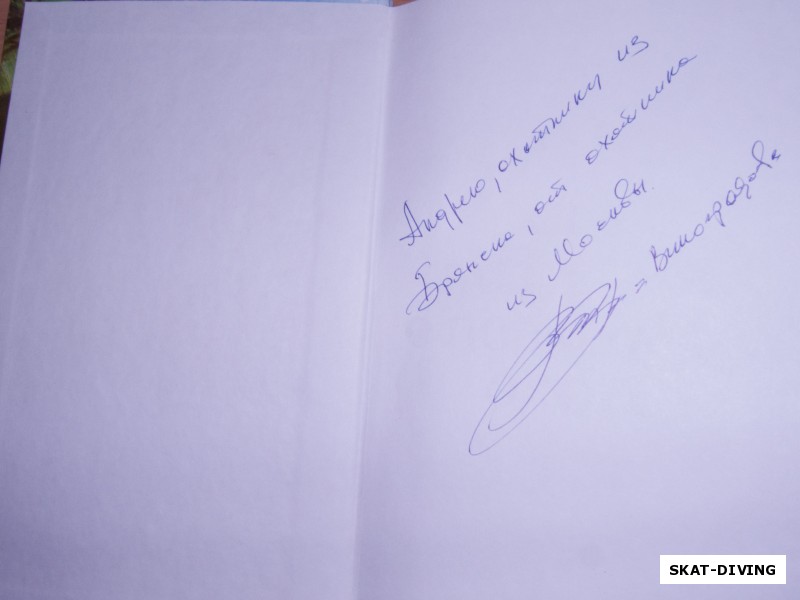 Андрею, охотнику из
Брянска, от охотника
из Москвы.
= Виноградов
SKAT-DIVING